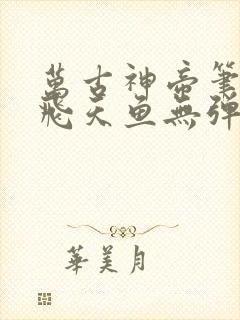 萬古神帝筆
飛天魚無彈
華美月